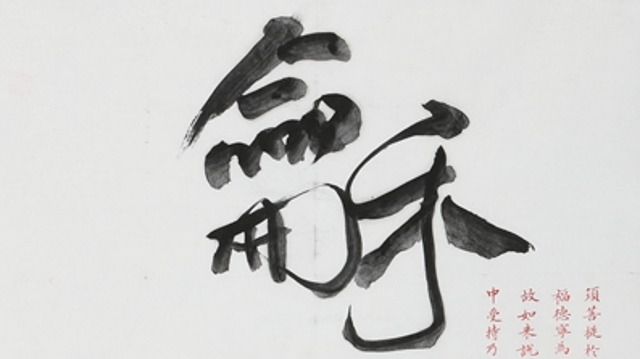 龢
須菩提於
福德寧為
故如来說
中受持乃